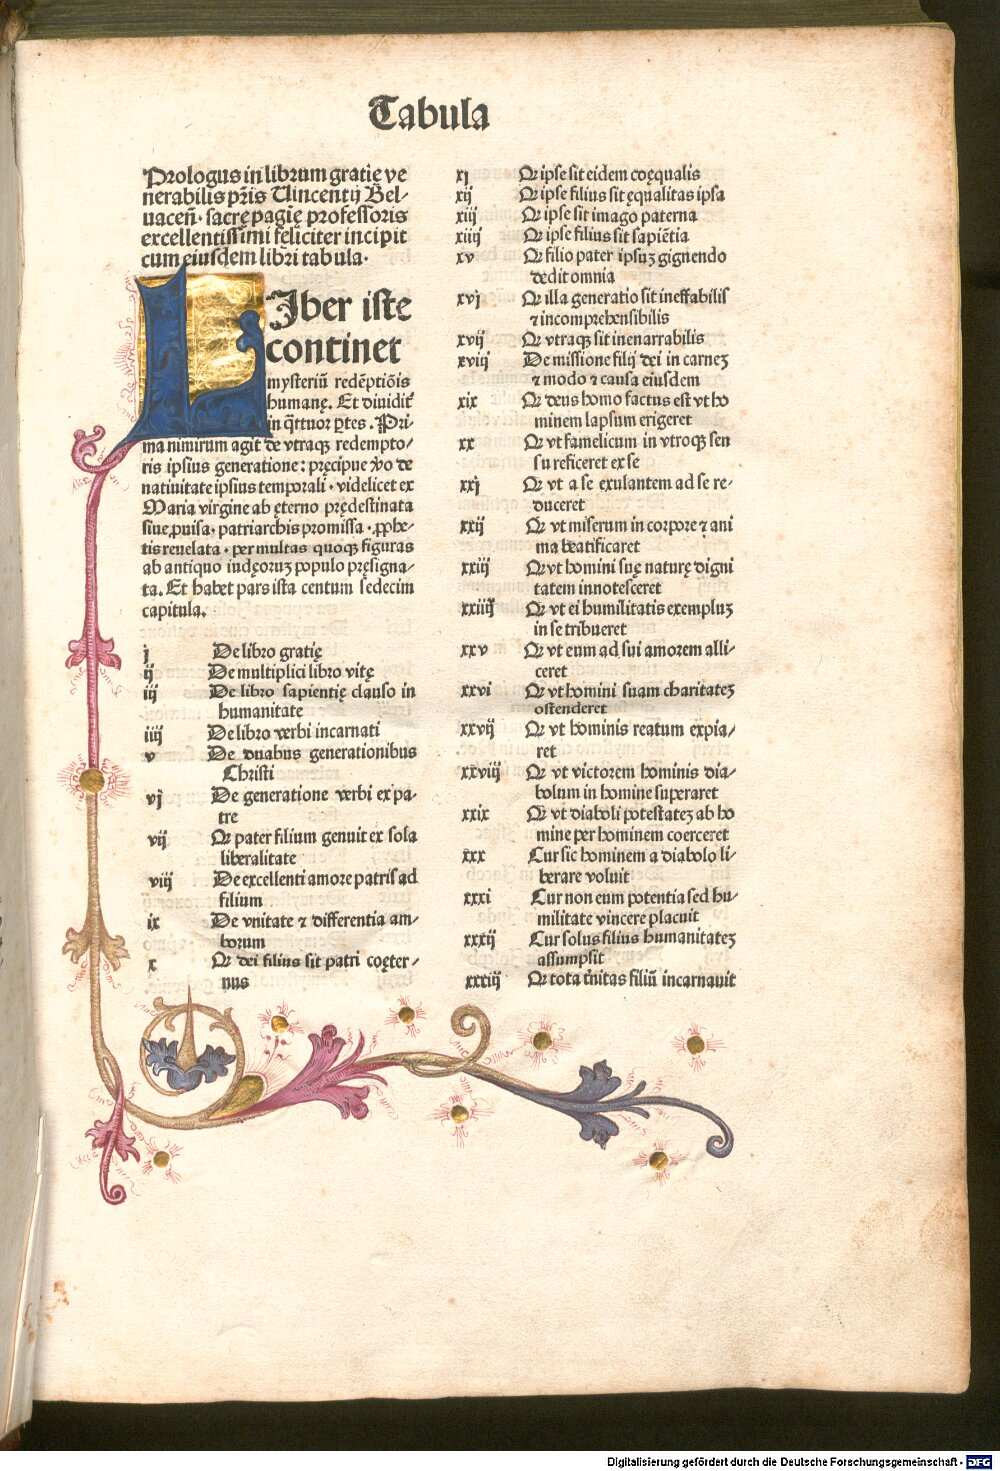 Tabula
Prologus in librum gratię ve
nerabilis pr̄is Uincentij Bel-
uaceñ. sacrę pagię professoris
excellentissimi feliciter incipit
cum eiusdem libri tabula.
LIber iste
continet
mysteriū redēptiōis
humanę. Et diuidit᷑
in q̄ttuor ꝑtes. Pri-
ma nimirum agit de vtraqꝫ redempto-
ris ipsius generatione: pręcipue ꝟo de
natiuitate ipsius temporali. videlicet ex
Maria virgine ab ęterno prędestinata
siue ꝓuisa. patriarchis promissa. ꝓphe-
tis reuelata. per multas quoqꝫ figuras
ab antiquo iudęoruꝫ populo pręsigna-
ta. Et habet pars ista centum sedecim
capitula.
j De libro gratię
ij De multiplici libro vitę
iij De libro sapientię clauso in
humanitate
iiij De libro verbi incarnati
v De duabus generationibus
Christi
vj De generatione verbi ex pa-
tre
vij Qꝛ pater filium genuit ex sola
liberalitate
viij De excellenti amore patris ad
filium
ix De vnitate ⁊ differentia am-
borum
x Qꝛ dei filius sit patri coęter-
nus
xj Qꝛ ipse sit eidem coęqualis
xij Qꝛ ipse filius sit ęqualitas ipsa
xiij Qꝛ ipse sit imago paterna
xiiij Qꝛ ipse filius sit sapiētia
xv Qꝛ filio pater ipsuꝫ gignendo
dedit omnia
xvj Qꝛ illa generatio sit ineffabilis
⁊ incomprehensibilis
xvij Qꝛ vtraqꝫ sit inenarrabilis
xviij De missione filij dei in carneꝫ
⁊ modo ⁊ causa eiusdem
xix Qꝛ deus homo factus est vt ho
minem lapsum erigeret
xx Qꝛ vt famelicum in vtroqꝫ sen
su reficeret ex se
xxj Qꝛ vt a se exulantem ad se re-
duceret
xxij Qꝛ vt miserum in corpore ⁊ ani
ma beatificaret
xxiij Qꝛ vt homini suę naturę digni
tatem innotesceret
xxiiij Qꝛ vt ei humilitatis exempluꝫ
in se tribueret
xxv Qꝛ vt eum ad sui amorem alli-
ceret
xxvi Qꝛ vt homini suam charitateꝫ
ostenderet
xxvij Qꝛ vt hominis reatum expia-
ret
xxviij Qꝛ vt victorem hominis dia-
bolum in homine superaret
xxix Qꝛ vt diaboli potestateꝫ ab ho
mine per hominem coerceret
xxx Cur sic hominem a diabolo li-
berare voluit
xxxi Cur non eum potentia sed hu-
militate vincere placuit
xxxij Cur solus filius humanitateꝫ
assumpsit
xxxiij Qꝛ tota tr̄nitas filiū incarnauit
Digitalisierung gefördert durch die Deutsche Forschungsgemeinschaft - DFG